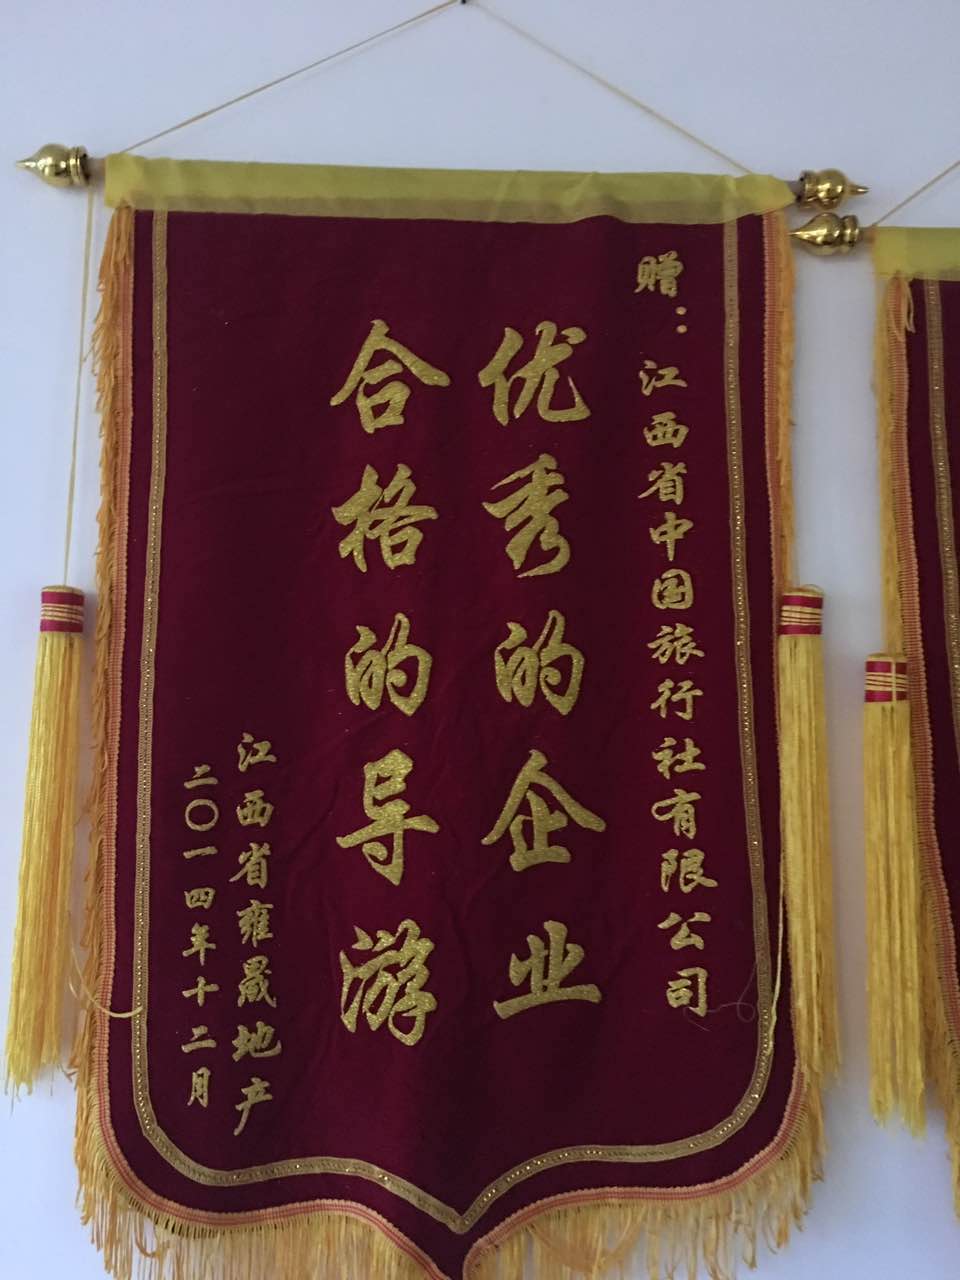 赠：江西省中国旅行社有限公司
优秀的企业
合格的导游
江西省雍晟地产
二〇一四年十二月